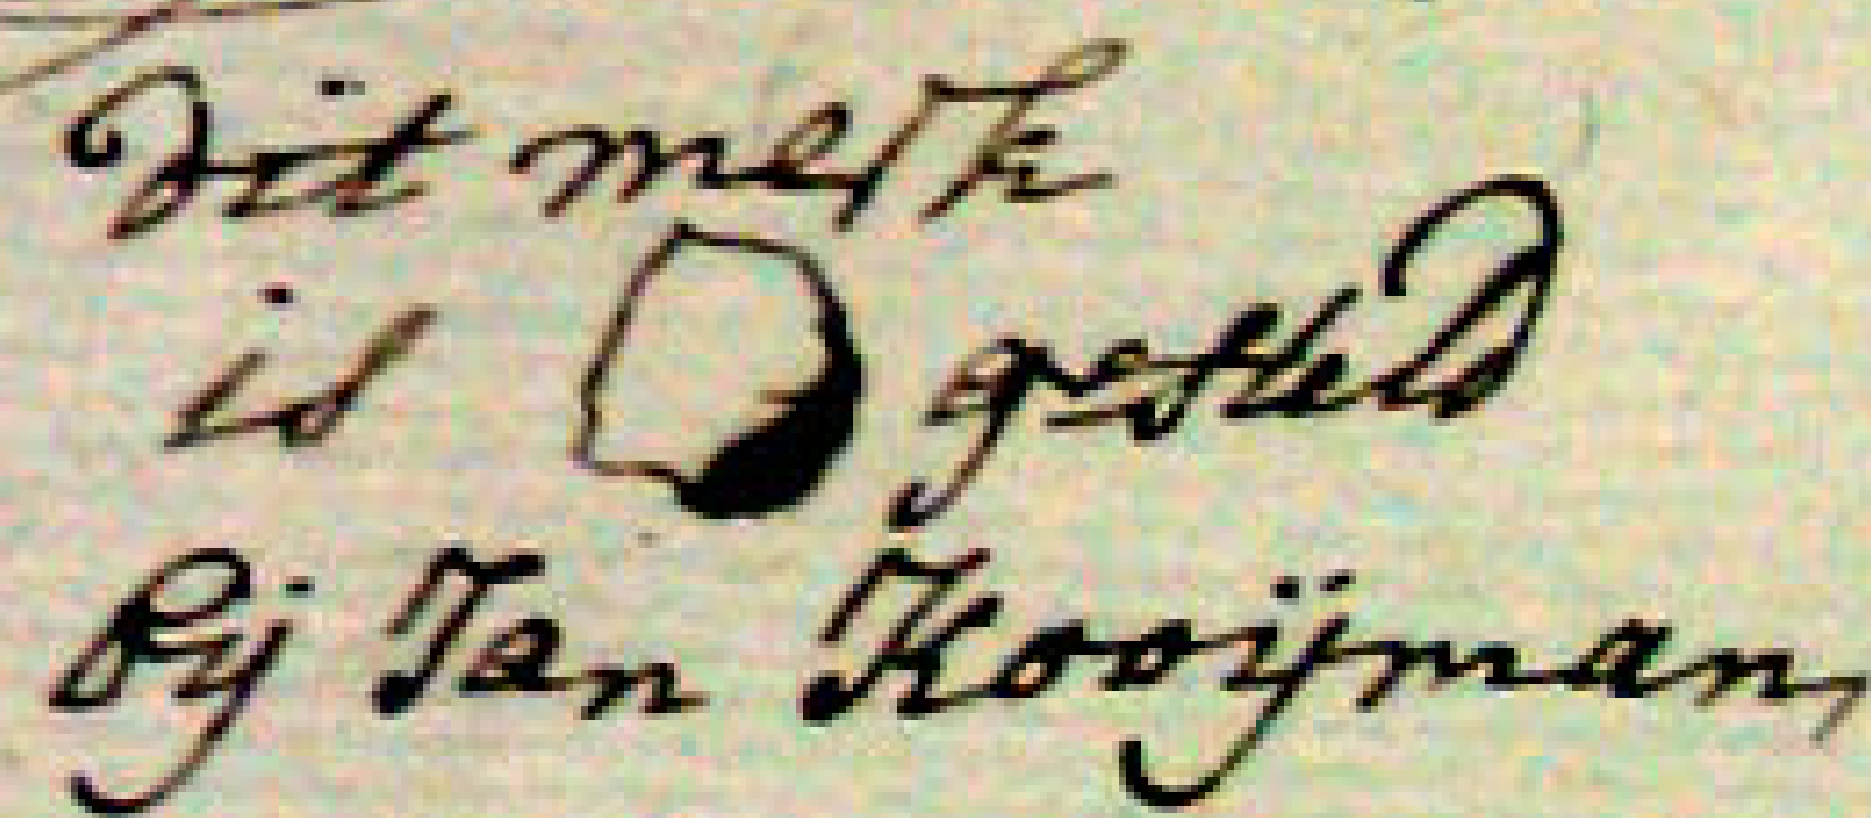 Dit merk
is gesteld
bij Jan Kooijman,